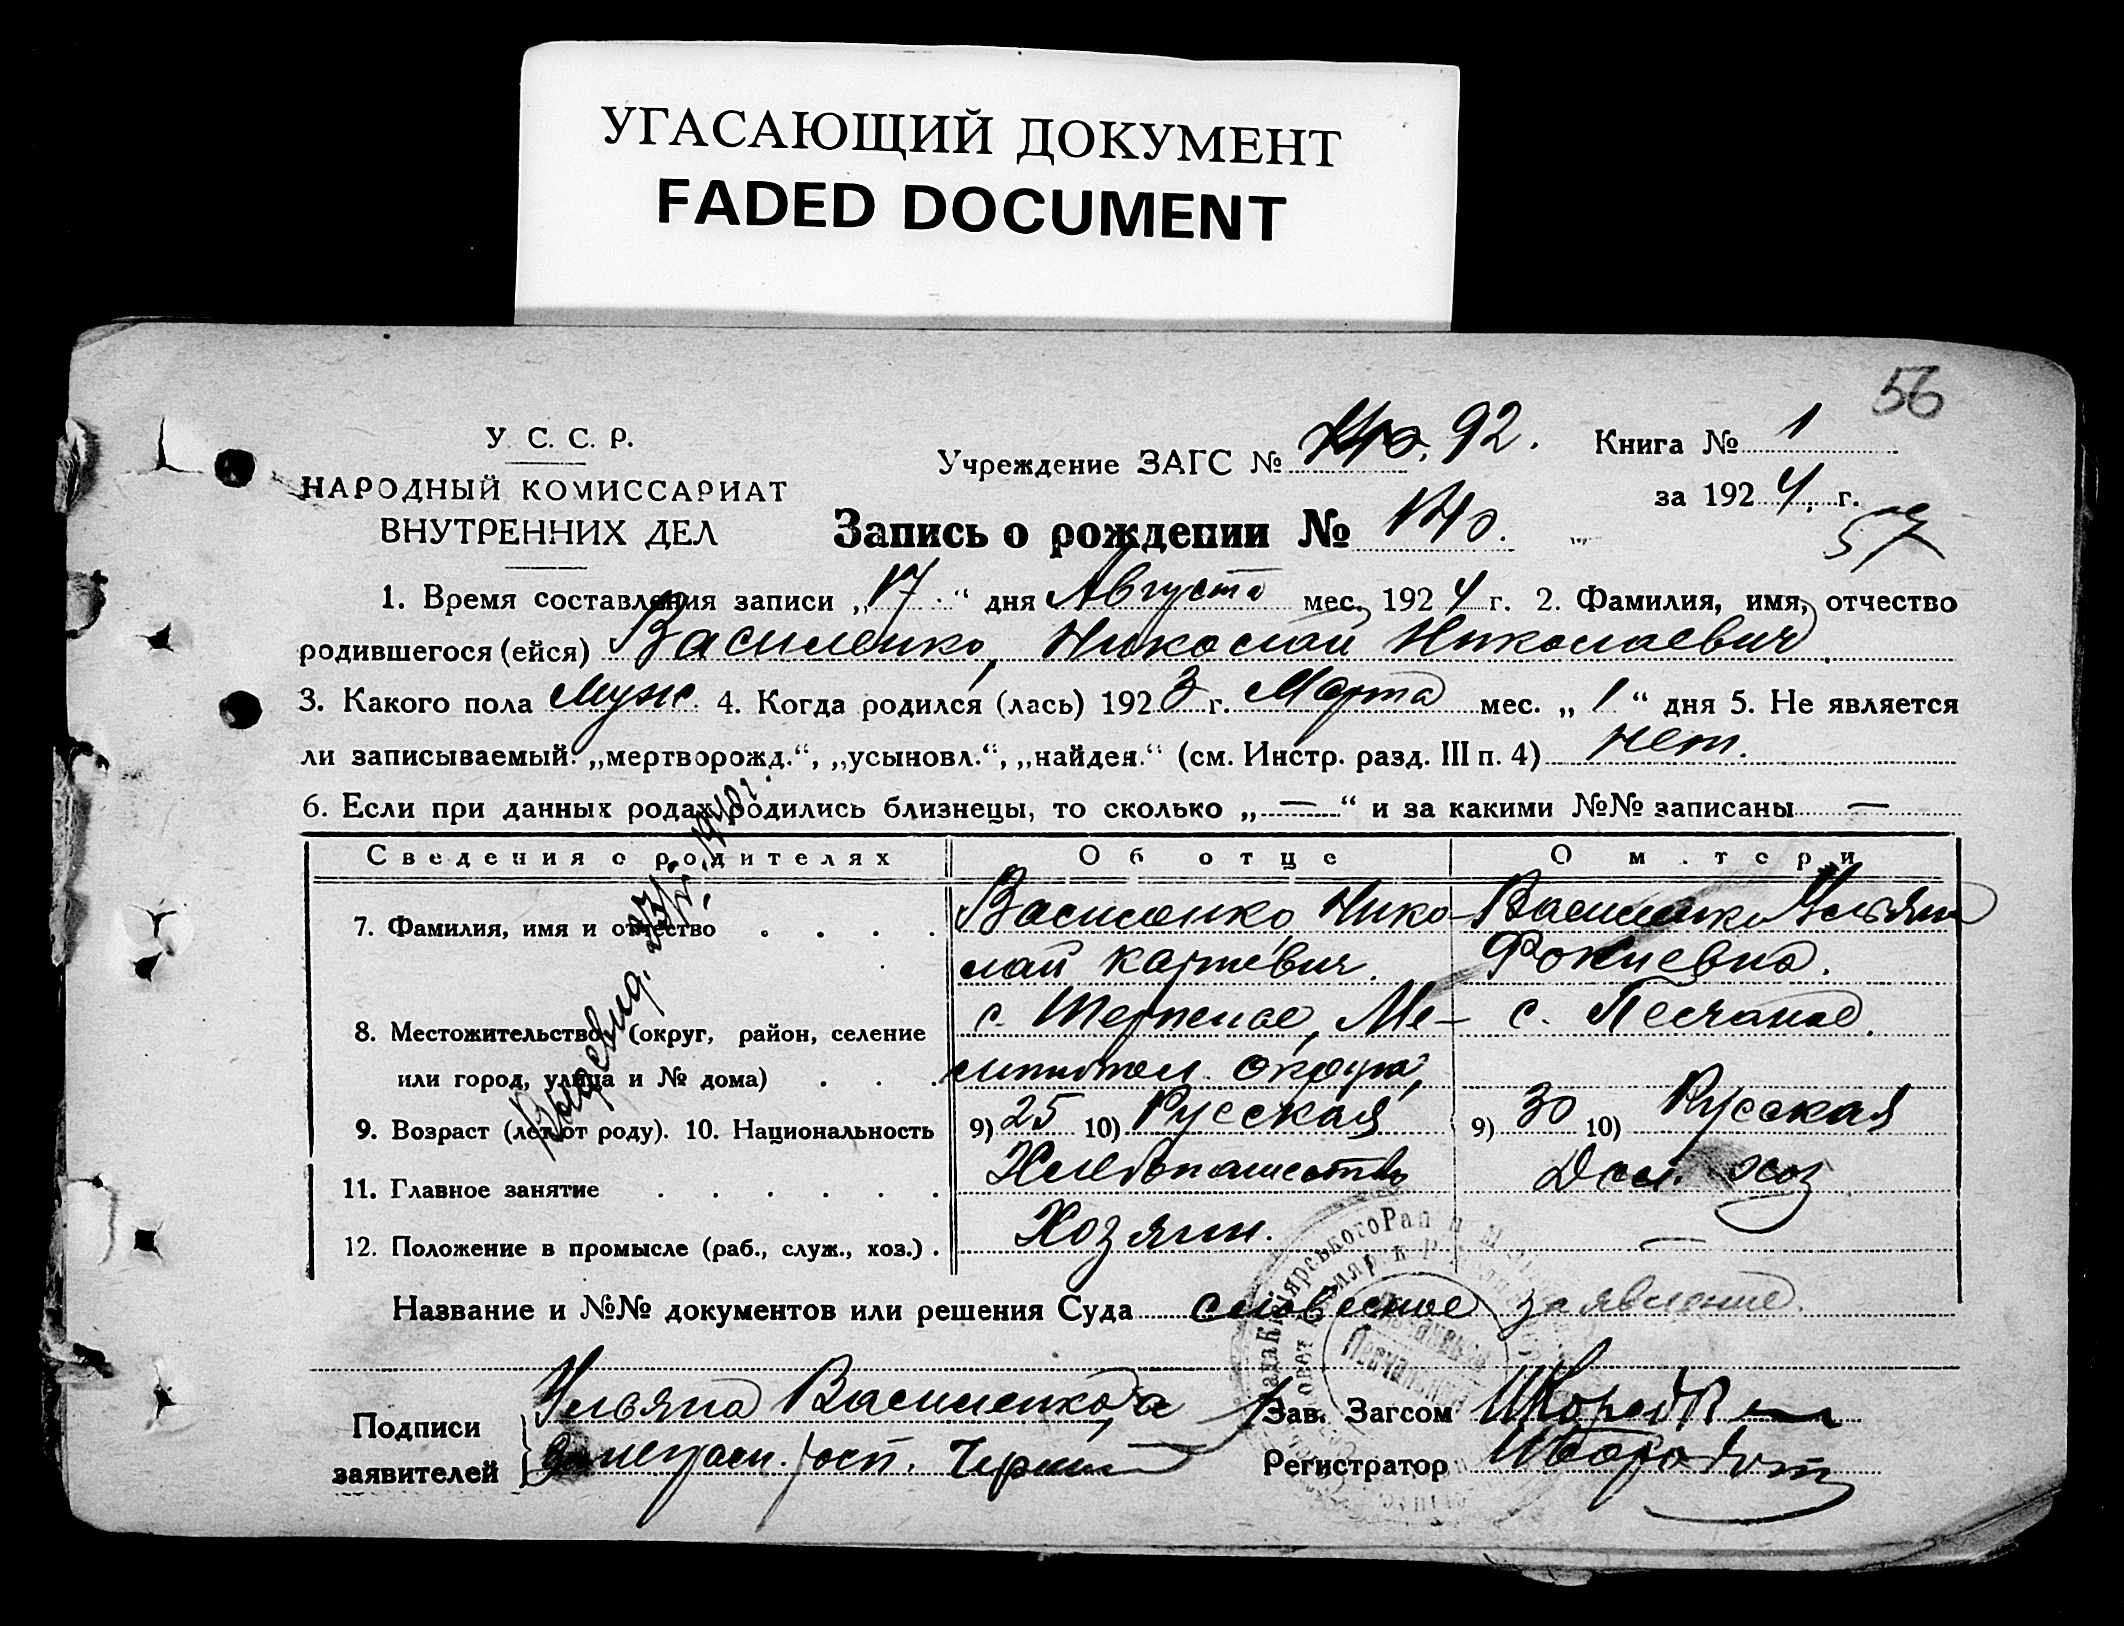 УГАСАЮЩИЙ ДОКУМЕНТ
FADED DOCUMENT
56
У. С. С. Р.
НАРОДНЫЙ КОМИССАРИАТ
ВНУТРЕННИХ ДЕЛ
Учреждение ЗАГС № 92.
Книга № 1
за 1924 г.
57
Запись о рождении № 140.
1. Время составления записи „17“ дня Августа мес. 1924 г. 2. Фамилия, имя, отчество
родившегося (ейся) Василенко, Николай Николаевич
3. Какого пола Муж. 4. Когда родился (лась) 1923 г. Марта мес. „1“ дня 5. Не является
ли записываемый: „мертворожд.“, „усыновл.“, „найден.“ (см. Инстр. разд. III п. 4) нет.
6. Если при данных родах родились близнецы, то сколько „—“ и за какими №№ записаны —
Сведения о родителях Об отце О матери
7. Фамилия, имя и отчество . . . . Василенко, Нико- Василенко Ульяна
лай Карпевич. Фокиевна.
8. Местожительство (округ, район, селение с. Терпение, Ме- с. Песчаное.
или город, улица и № дома) . . . литопол. округа,
9. Возраст (лет от роду). 10. Национальность 9) 25 10) Русская 9) 30 10) Русская
11. Главное занятие . . . . . . Хлебопашество Дом. хоз
12. Положение в промысле (раб., служ., хоз.) . Хозяин. —
Название и №№ документов или решения Суда словесное заявление.
Подписи
заявителей
Ульяна Василенкова
Зав. Загсом
Регистратор